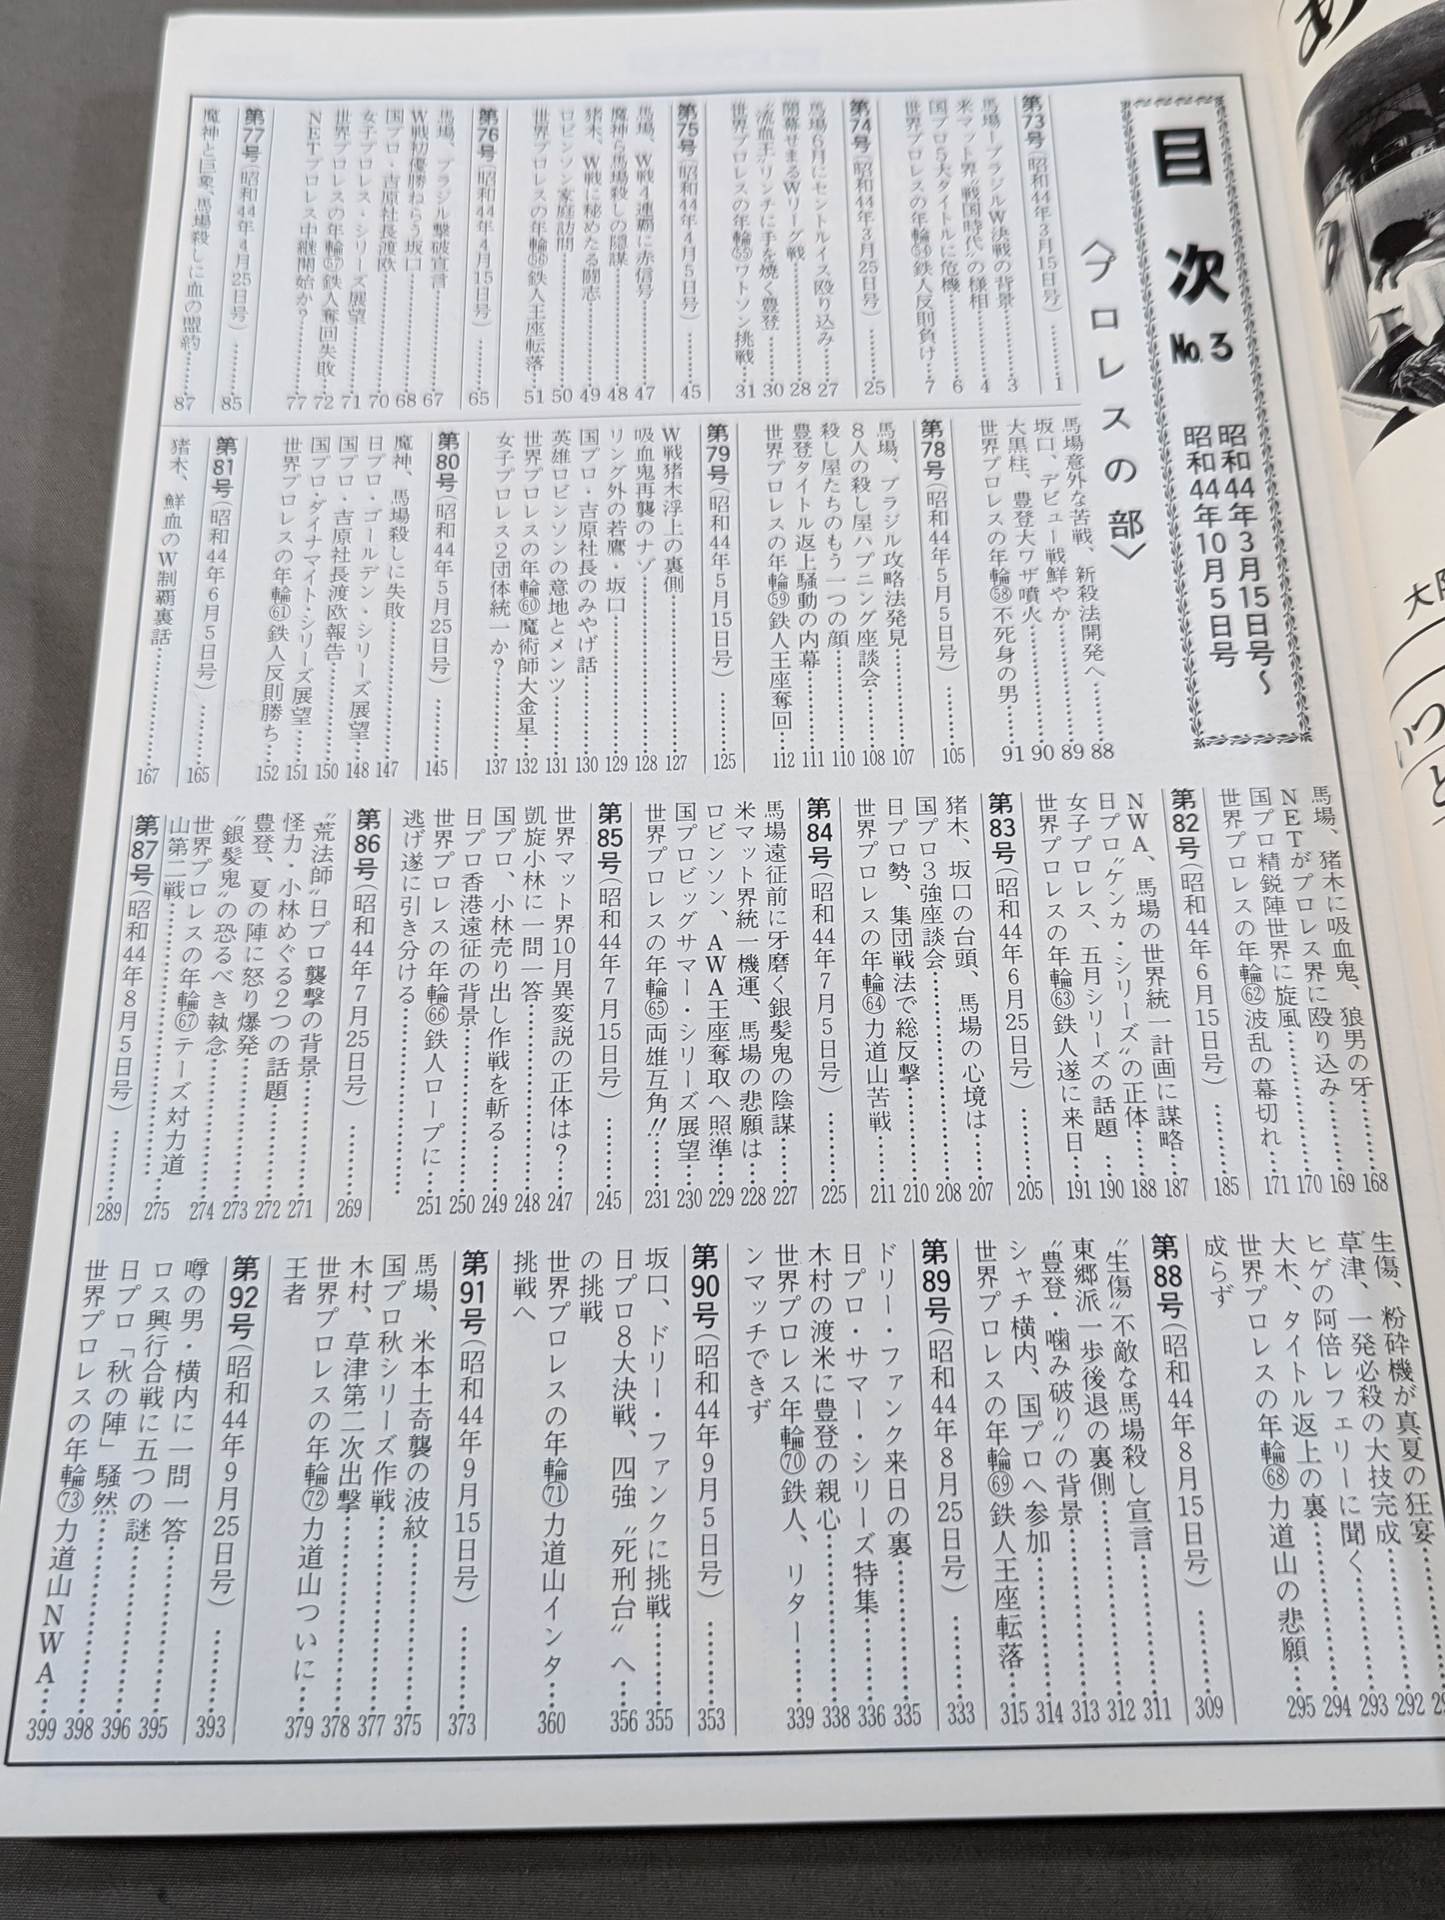 目次 No.3
昭和44年3月15日号～
昭和44年10月5日号
〈プロレスの部〉
第73号(昭和44年3月15日号)………1
馬場―ブラジルW決戦の背景………3
米マット界〝戦国時代〟の様相………4
国プロ5大タイトルに危機………6
世界プロレスの年輪㊴鉄人反則負け………7
第74号(昭和44年3月25日号)………25
馬場6月にセントルイス殴り込み………27
開幕せまるWリーグ戦………28
〝流血王〟リンチに手を焼く豊登………30
世界プロレスの年輪㊺ワトソン挑戦………31
第75号(昭和44年4月5日号)………45
馬場、W戦4連覇に赤信号………47
魔神ら馬場殺しの陰謀………48
猪木、W戦に秘めたる闘志………49
ロビンソン家庭訪問………50
世界プロレスの年輪㊻鉄人王座転落………51
第76号(昭和44年4月15日号)………65
馬場、ブラジル撃破宣言………67
W戦初優勝ねらう坂口………68
国プロ・吉原社長渡欧………70
女子プロレス・シリーズ展望………71
世界プロレスの年輪(57)鉄人奪回失敗………72
NETプロレス中継開始か?………77
第77号(昭和44年4月25日号)………85
魔神と巨象、馬場殺しに血の盟約………87
馬場意外な苦戦、新殺法開発へ………88
坂口、デビュー戦鮮やか………89
大黒柱、豊登大ワザ噴火………90
世界プロレスの年輪(58)不死身の男………91
第78号(昭和44年5月5日号)………105
馬場、ブラジル攻略法発見………107
8人の殺し屋ハプニング座談会………108
殺し屋たちのもう一つの顔………110
豊登タイトル返上騒動の内幕………111
世界プロレスの年輪(59)鉄人王座奪回………112
第79号(昭和44年5月15日号)………125
W戦猪木浮上の裏側………127
吸血鬼再襲のナゾ………128
リング外の若鷹・坂口………129
国プロ・吉原社長のみやげ話………130
英雄ロビンソンの意地とメンツ………131
世界プロレスの年輪(60)魔術師大金星………132
女子プロレス2団体統一か?………137
第80号(昭和44年5月25日号)………145
魔神、馬場殺しに失敗………147
日プロ・ゴールデン・シリーズ展望………148
国プロ・吉原社長渡欧報告………150
国プロ・ダイナマイト・シリーズ展望………151
世界プロレスの年輪(61)鉄人反則勝ち………152
第81号(昭和44年6月5日号)………165
猪木、鮮血のW制覇裏話………167
馬場、猪木に吸血鬼、狼男の牙………168
NETがプロレス界に殴り込み………169
国プロ精鋭陣世界に旋風………170
世界プロレスの年輪(62)波乱の幕切れ………171
第82号(昭和44年6月15日号)………185
NWA、馬場の世界統一計画に謀略………187
日プロ〝ケンカ・シリーズ〟の正体………188
女子プロレス、五月シリーズの話題………190
世界プロレスの年輪(63)鉄人遂に来日………191
第83号(昭和44年6月25日号)………205
猪木、坂口の台頭、馬場の心境は………207
国プロ3強座談会………208
日プロ勢、集団戦法で総反撃………210
世界プロレスの年輪(64)力道山苦戦………211
第84号(昭和44年7月5日号)………225
馬場遠征前に牙磨く銀髪鬼の陰謀………227
米マット界統一機運、馬場の悲願は………228
ロビンソン、AWA王座奪取へ照準………229
国プロビッグサマー・シリーズ展望………230
世界プロレスの年輪(65)両雄互角!!………231
第85号(昭和44年7月15日号)………245
世界マット界10月異変説の正体は?………247
凱旋小林に一問一答………248
国プロ、小林売り出し作戦を斬る………249
日プロ香港遠征の背景………250
世界プロレスの年輪(66)鉄人ロープに
逃げ遂に引き分ける………251
第86号(昭和44年7月25日号)………269
〝荒法師〟日プロ襲撃の背景………271
怪力・小林めぐる2つの話題………272
豊登、夏の陣に怒り爆発………273
〝銀髪鬼〟の恐るべき執念………274
世界プロレスの年輪(67)テーズ対力道
山第二戦………275
第87号(昭和44年8月5日号)………289
生傷、粉砕機が真夏の狂宴………
草津、一発必殺の大技完成………292
ヒゲの阿倍レフェリーに聞く………293
大木、タイトル返上の裏………294
世界プロレスの年輪(68)力道山の悲願
成らず………295
第88号(昭和44年8月15日号)………309
〝生傷〟不敵な馬場殺し宣言………311
東郷派一歩後退の裏側………312
〝豊登・噛み破り〟の背景………313
シャチ横内、国プロへ参加………314
世界プロレスの年輪(69)鉄人王座転落………315
第89号(昭和44年8月25日号)………333
ドリー・ファンク来日の裏………335
日プロ・サマー・シリーズ特集………336
木村の渡米に豊登の親心………338
世界プロレス年輪(70)鉄人、リター
ンマッチできず………339
第90号(昭和44年9月5日号)………353
坂口、ドリー・ファンクに挑戦………355
日プロ8大決戦、四強〝死刑台〟へ
の挑戦………356
世界プロレスの年輪(71)力道山インタ
挑戦へ………360
第91号(昭和44年9月15日号)………373
馬場、米本土奇襲の波紋………375
国プロ秋シリーズ作戦………377
木村、草津第二次出撃………378
世界プロレスの年輪(72)力道山ついに
王者………379
第92号(昭和44年9月25日号)………393
噂の男・横内に一問一答………395
ロス興行合戦に五つの謎………396
日プロ「秋の陣」騒然………398
世界プロレスの年輪(73)力道山NWA………399